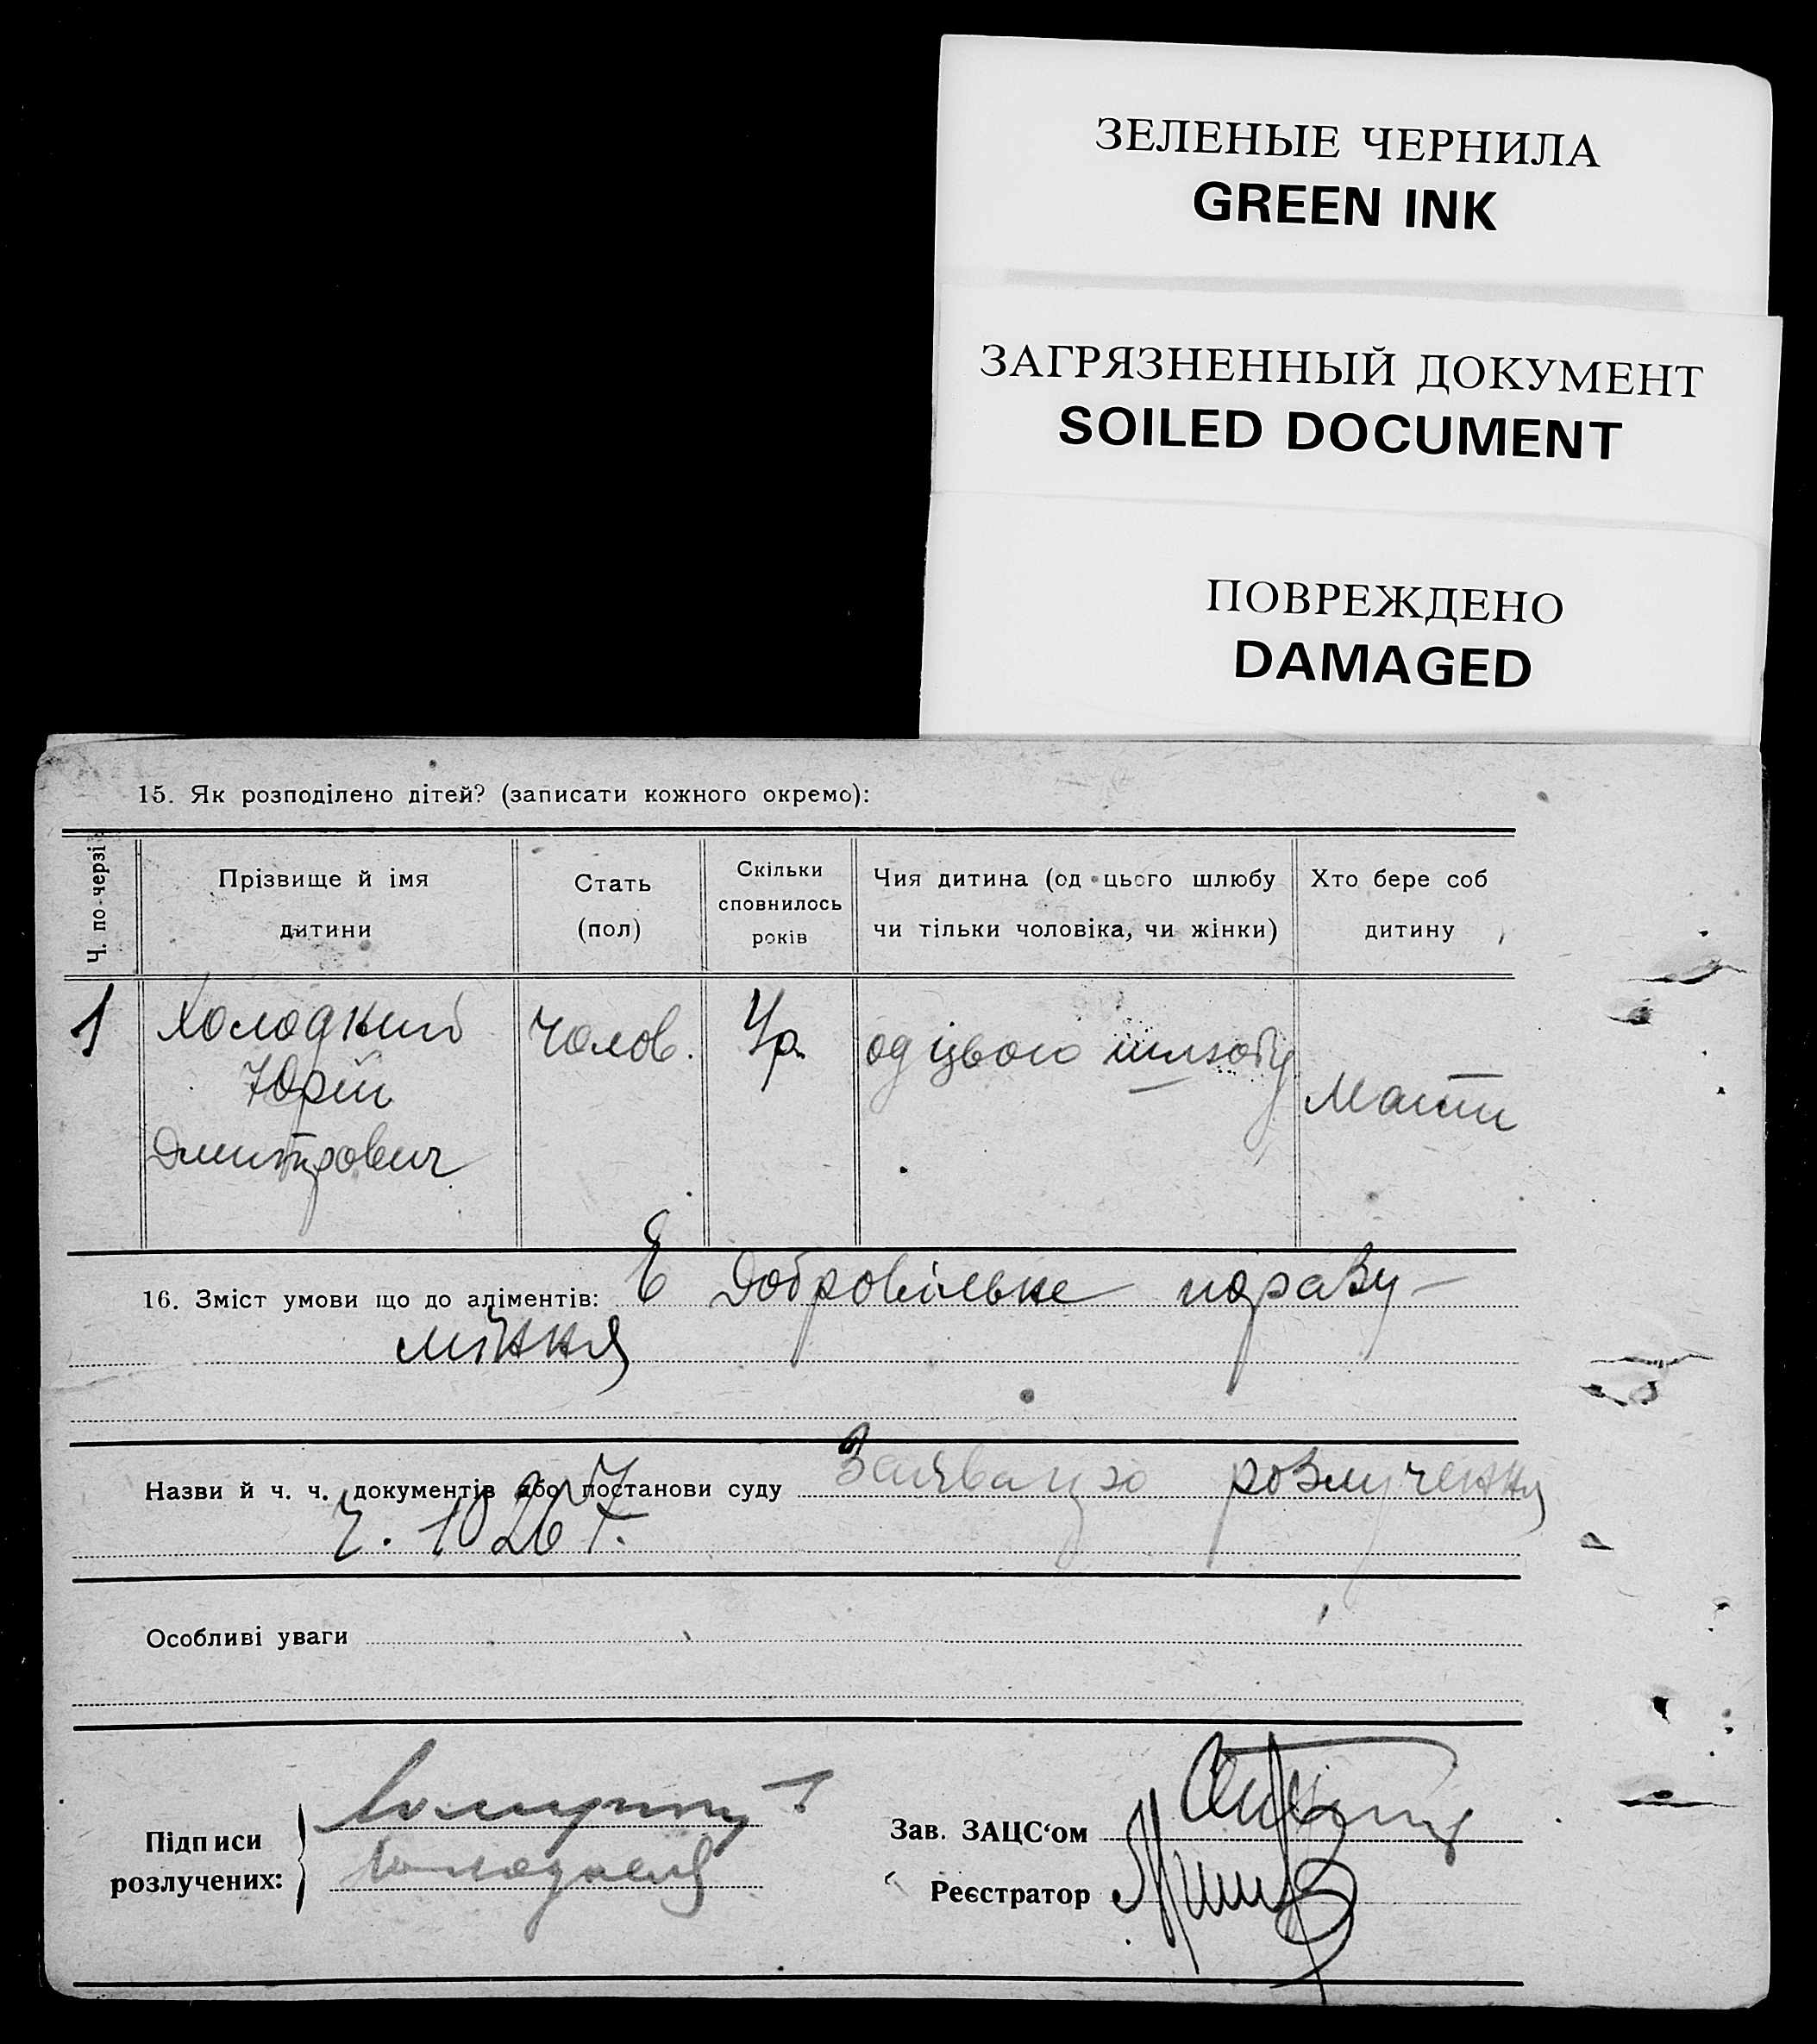 ЗЕЛЕНЫЕ ЧЕРНИЛА
GREEN INK
ЗАГРЯЗНЕННЫЙ ДОКУМЕНТ
SOILED DOCUMENT
ПОВРЕЖДЕНО
DAMAGED
15. Як розподілено дітей? (записати кожного окремо):
Ч. по черзі
Прізвище й імя
дитини
Стать
(пол)
Скільки
сповнилось
років
Чия дитина (од цього шлюбу
чи тільки чоловіка, чи жінки)
Хто бере соб
дитину
1
Холодний
Юрій
Дмитрович
Чолов.
4 р.
од цього шлюбу
Мати
16. Зміст умови що до аліментів: Є Добровільне поразу-
міння
Назви й ч. ч. документів або постанови суду Заява про розлучення
Ч. 10267.
Особливі уваги
Підписи
розлучених:
Зав. ЗАЦС'ом
Реєстратор